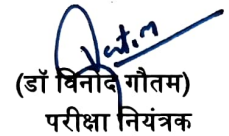 (डॉ विनोद गौतम)
परीक्षा नियंत्रक